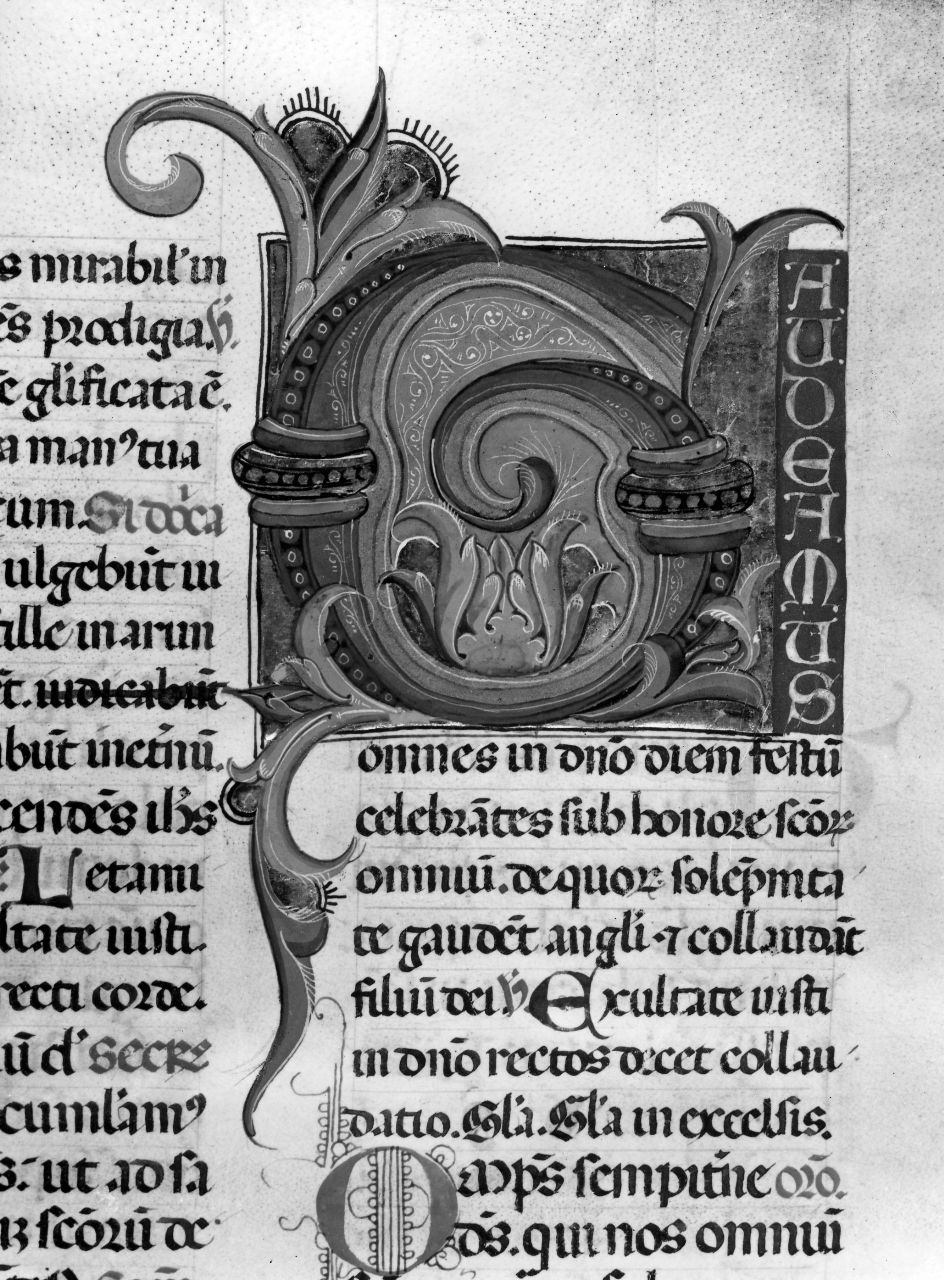 s mirabil' in
ẽs prodigia. V̉.
ẽ gl'ificata ẽ.
a man9 tua
cum. Si dõca
ulgebũt ⁊ ĩ
tille in arun
ẽt. iudicabũt
abũt ĩ etñũ.
cendẽs ih̃s
Letami
ltate iusti.
recti corde.
iũ cl' Secre
cumlam9
s. ut ad sa
scõrũ de
GAUDEAMUS
omnes in dño diem festũ
celebrãtes sub honore scõꝝ
omniũ. de quoꝝ solẽpnita
te gaudẽt angl'i ⁊ collaudãt
filiũ dei V̉ Exultate iusti
in dño rectos decet collau
datio. Gl'a. Gl'a in excelsis.
OMp̃s sempit̃ne orõ.
d̃s. qui nos omniũ